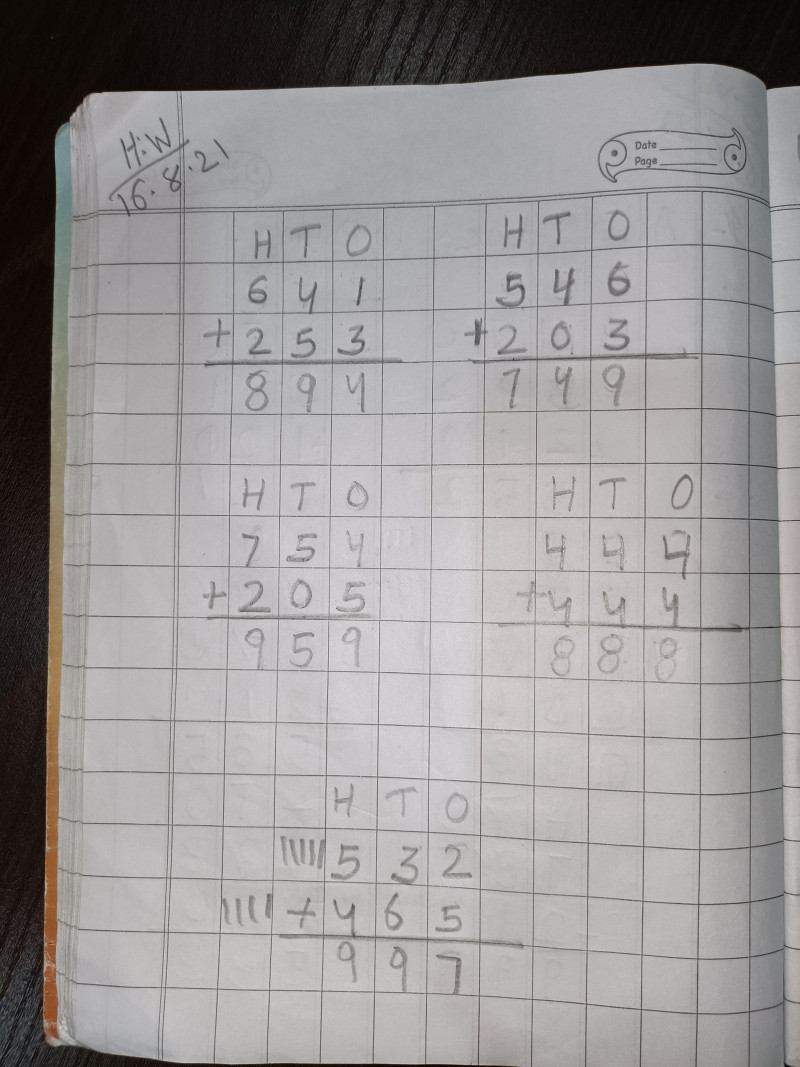 H.W
16.8.21
Date
Page
H T O
6 4 1
+ 2 5 3
8 9 4
H T O
5 4 6
+ 2 0 3
7 4 9
H T O
7 5 4
+ 2 0 5
9 5 9
H T O
4 4 4
+ 4 4 4
8 8 8
H T O
||||| 5 3 2
|||| + 4 6 5
9 9 7